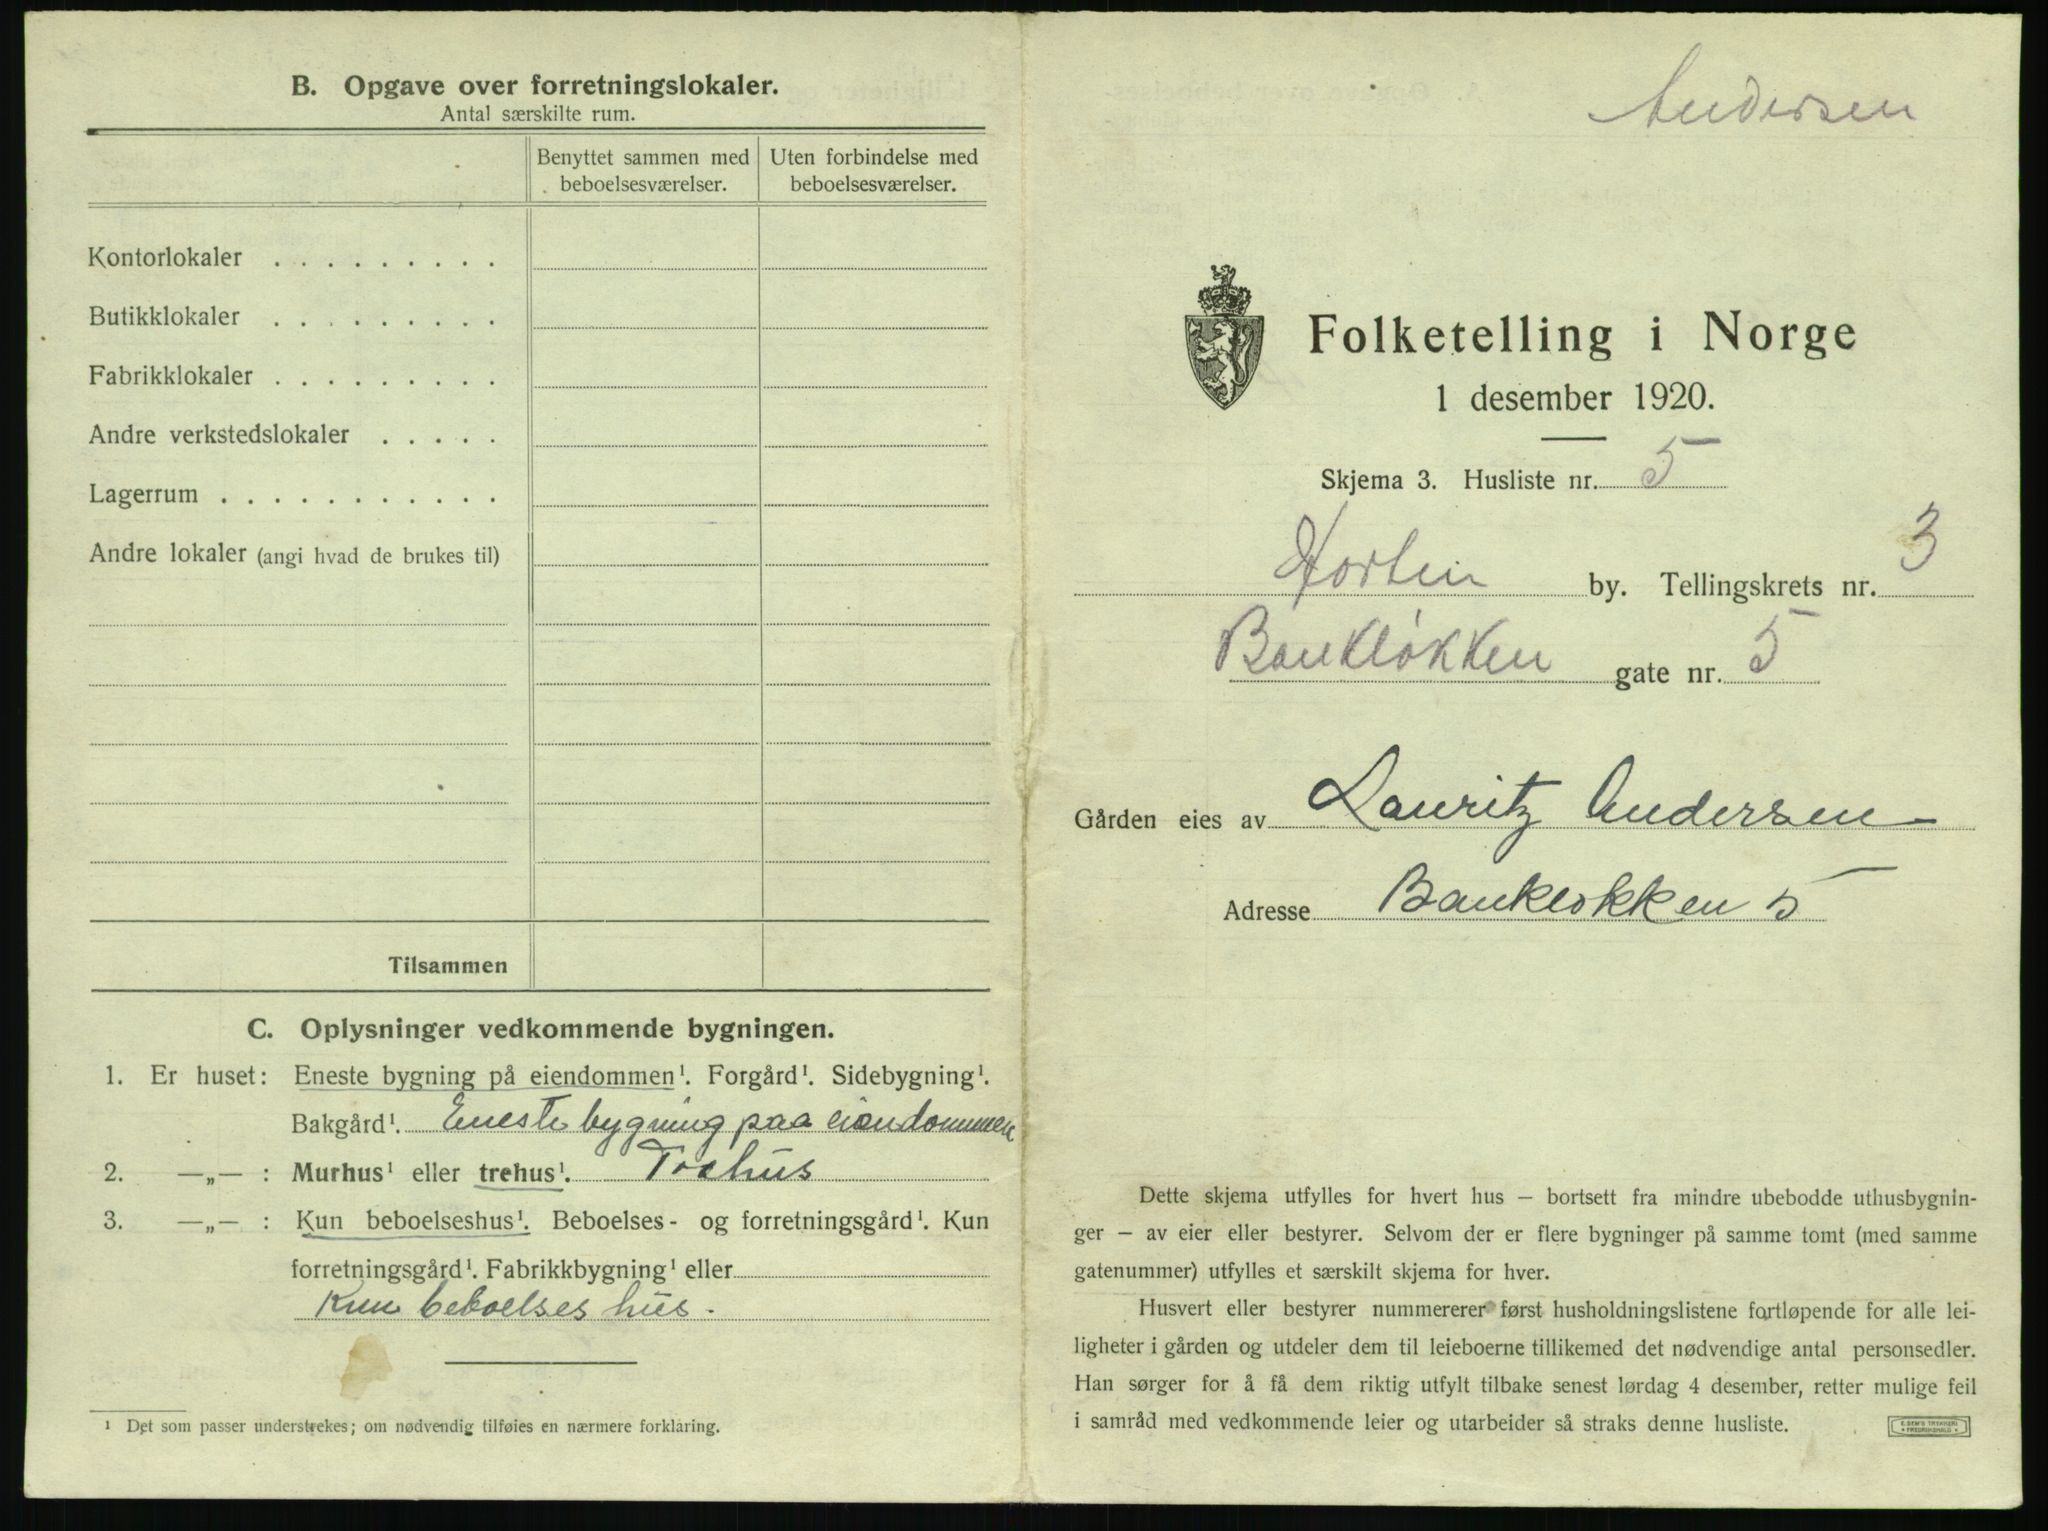 B. Opgave over forretningslokaler.
Antal særskilte rum.
Benyttet sammen med beboelsesværelser.
Uten forbindelse med beboelsesværelser.
Kontorlokaler . . . . . . . . .
Butikklokaler . . . . . . . . .
Fabrikklokaler . . . . . . . . .
Andre verkstedslokaler . . . . .
Lagerrum . . . . . . . . . . .
Andre lokaler (angi hvad de brukes til)
Tilsammen
C. Oplysninger vedkommende bygningen.
1. Er huset: Eneste bygning på eiendommen¹. Forgård¹. Sidebygning¹.
Bakgård¹. Eneste bygning paa eiendommen
2. —„— : Murhus¹ eller trehus¹. Træhus
3. —„— : Kun beboelseshus¹. Beboelses- og forretningsgård¹. Kun
forretningsgård¹. Fabrikkbygning¹ eller
Kun beboelses hus.
¹ Det som passer understrekes; om nødvendig tilføies en nærmere forklaring.
Andersen
Folketelling i Norge
1 desember 1920.
Skjema 3. Husliste nr. 5
Horten by. Tellingskrets nr. 3
Bankløkken gate nr. 5
Gården eies av Lauritz Andersen
Adresse Bankløkken 5
Dette skjema utfylles for hvert hus — bortsett fra mindre ubebodde uthusbygnin-
ger — av eier eller bestyrer. Selvom der er flere bygninger på samme tomt (med samme
gatenummer) utfylles et særskilt skjema for hver.
Husvert eller bestyrer nummererer først husholdningslistene fortløpende for alle lei-
ligheter i gården og utdeler dem til leieboerne tillikemed det nødvendige antal personsedler.
Han sørger for å få dem riktig utfylt tilbake senest lørdag 4 desember, retter mulige feil
i samråd med vedkommende leier og utarbeider så straks denne husliste.
E. SEM'S TRYKKERI
FREDRIKSHALD